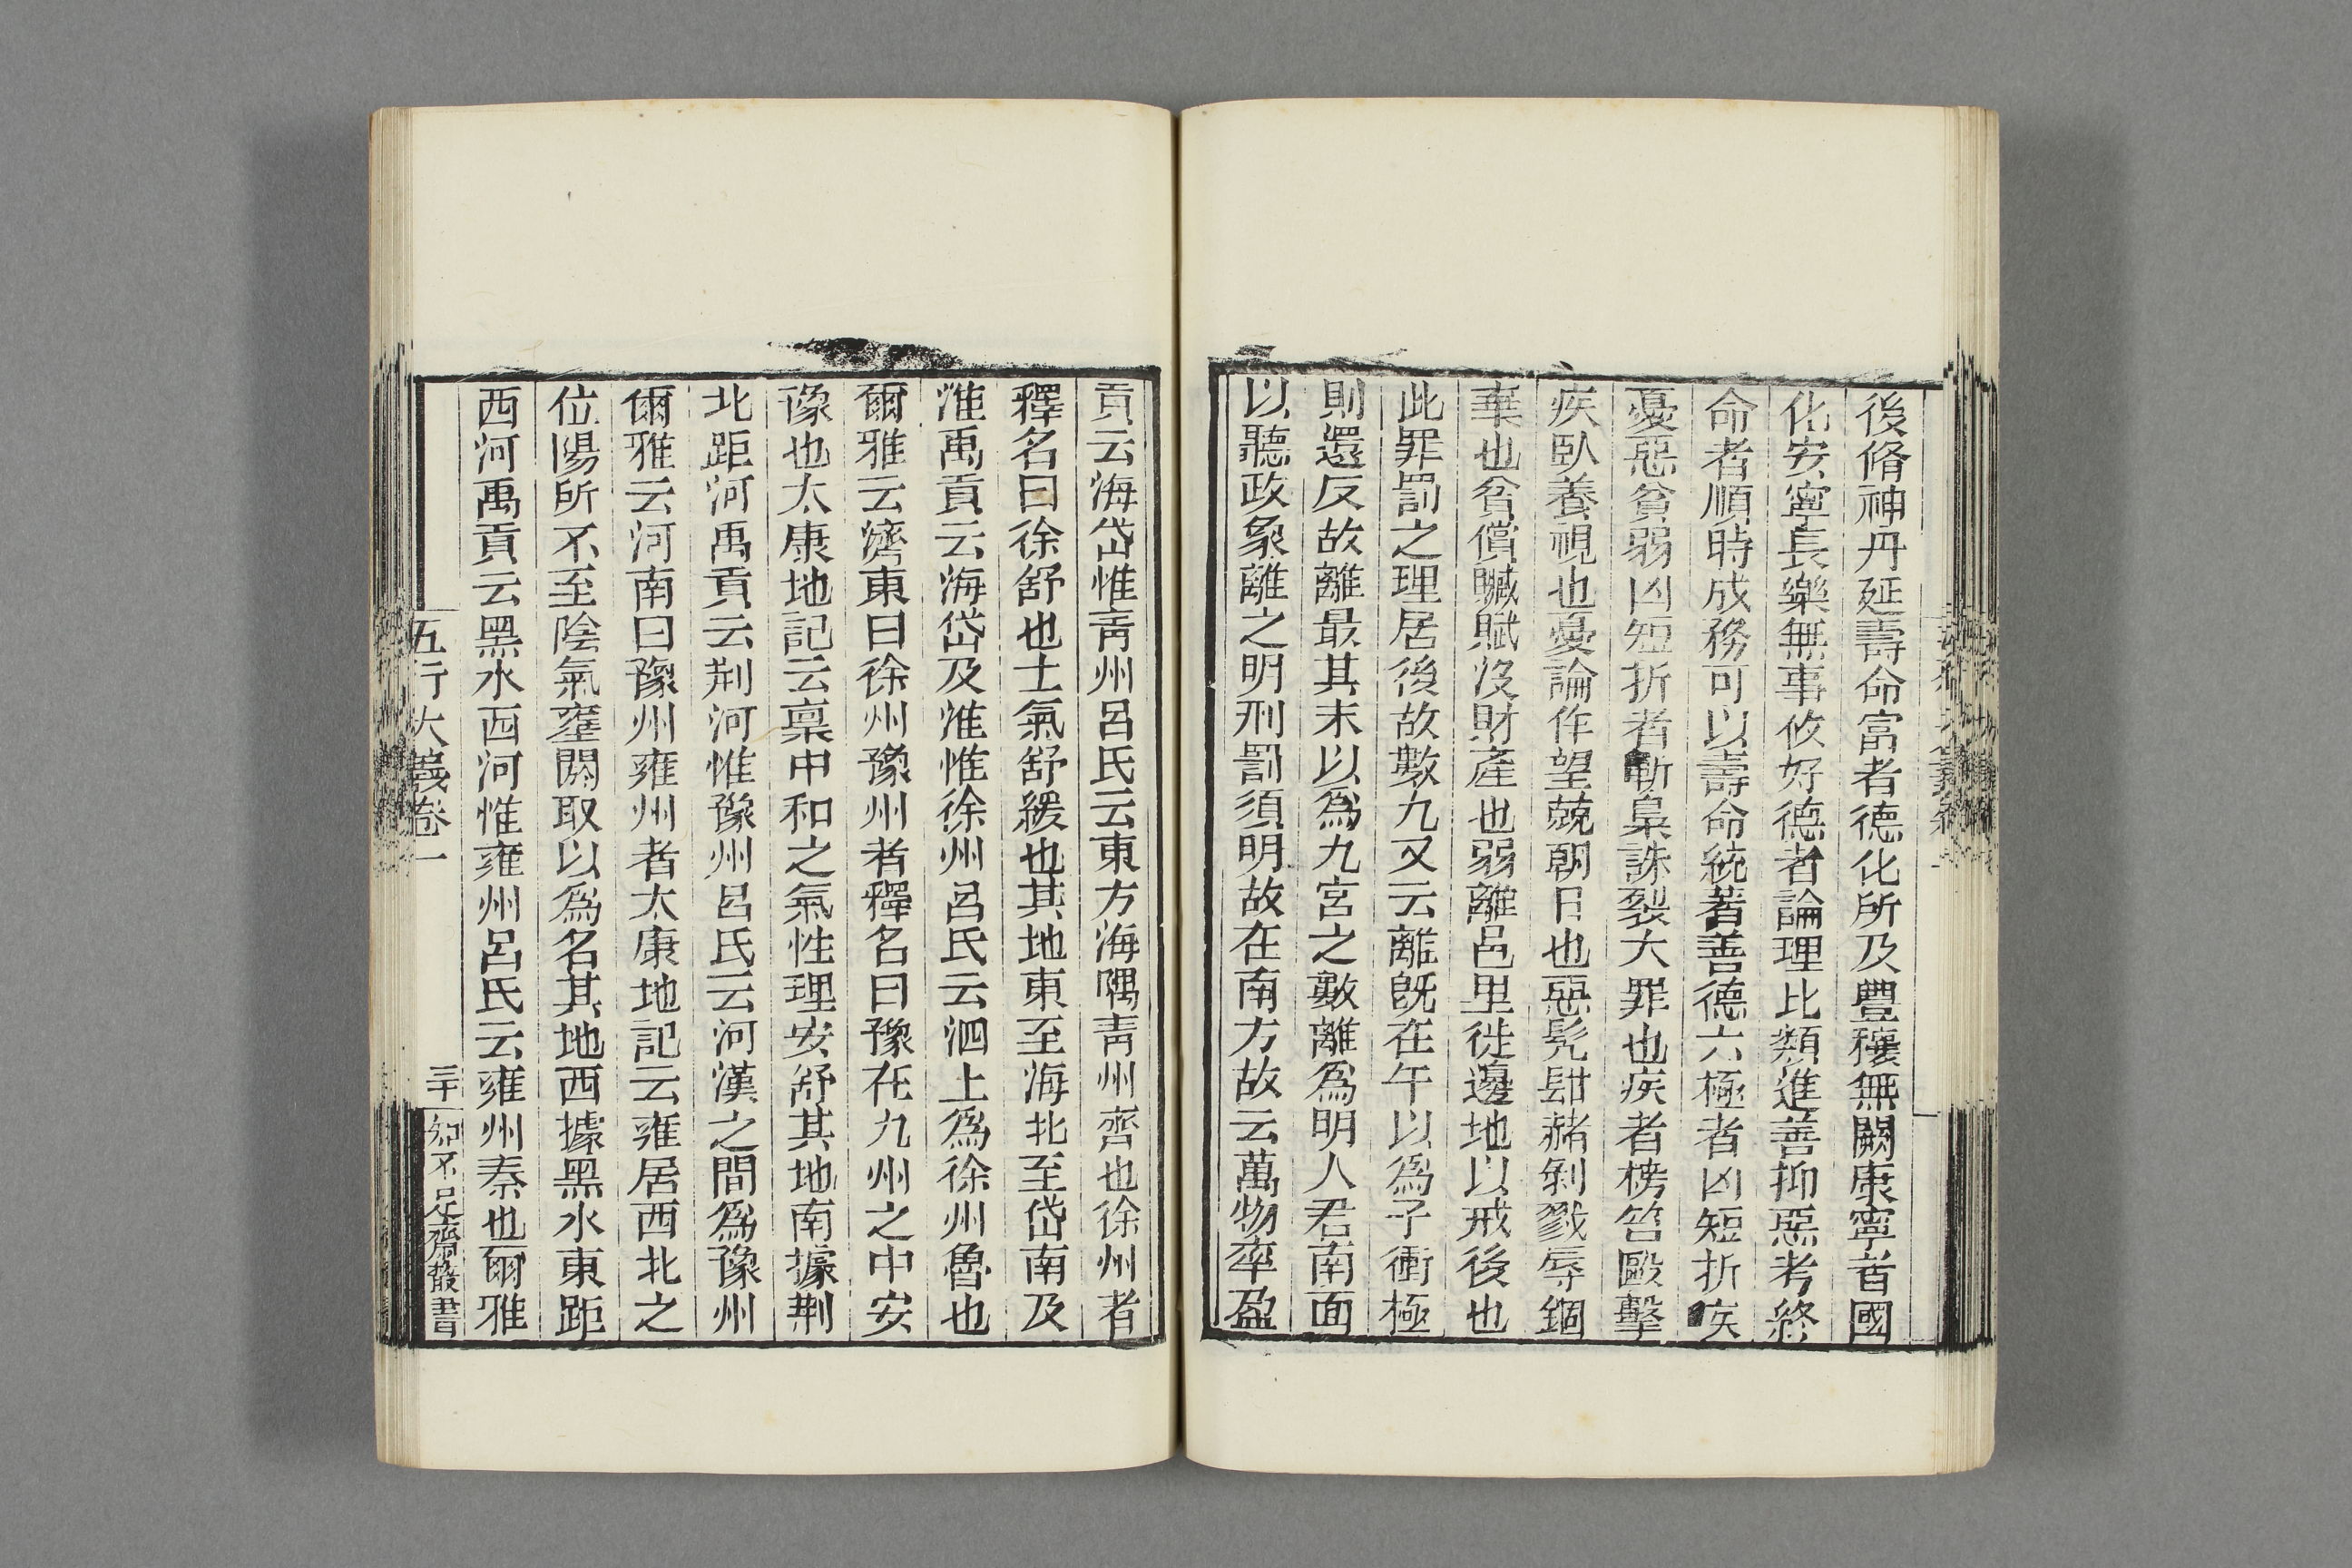 後脩神丹延壽命富者德化所及豐穰無闕康寧首國
化安寧長樂無事攸好德者論理比類進善抑惡考終
命者順時成務可以壽命統著善德六極者凶短折疾
憂惡貧弱凶短折者斬梟誅裂大罪也疾者榜笞毆擊
疾臥養視也憂論作望兢朝日也惡髡鉗赭剝戮辱錮
棄也貧償贓賦沒財產也弱離邑里徙邊地以戒後也
此罪罰之理居後故數九又云離既在午以爲子衝極
則還反故離最其末以爲九宮之數離爲明人君南面
以聽政象離之明刑罰須明故在南方故云萬物率盈
貢云海岱惟靑州呂氏云東方海隅靑州齊也徐州者
釋名曰徐舒也土氣舒緩也其地東至海北至岱南及
淮禹貢云海岱及淮惟徐州呂氏云泗上爲徐州魯也
爾雅云濟東曰徐州豫州者釋名曰豫在九州之中安
豫也太康地記云稟中和之氣性理安舒其地南據荆
北距河禹貢云荆河惟豫州呂氏云河漢之間爲豫州
爾雅云河南曰豫州雍州者太康地記云雍居西北之
位陽所不至陰氣壅閼取以爲名其地西據黑水東距
西河禹貢云黑水西河惟雍州呂氏云雍州秦也爾雅
五行大義卷一
三十
知不足齋叢書